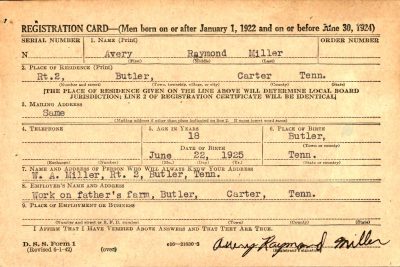 REGISTRATION CARD—(Men born on or after January 1, 1922 and on or before June 30, 1924)
SERIAL NUMBER 1. NAME (Print) ORDER NUMBER
N Avery Raymond Miller
(First) (Middle) (Last)
2. PLACE OF RESIDENCE (Print)
Rt.2, Butler, Carter Tenn.
(Number and street) (Town, township, village, or city) (County) (State)
[THE PLACE OF RESIDENCE GIVEN ON THE LINE ABOVE WILL DETERMINE LOCAL BOARD
JURISDICTION; LINE 2 OF REGISTRATION CERTIFICATE WILL BE IDENTICAL]
3. MAILING ADDRESS
Same
(Mailing address if other than place indicated on line 2. If same insert word same)
4. TELEPHONE 5. AGE IN YEARS 6. PLACE OF BIRTH
18 Butler,
DATE OF BIRTH (Town or county)
June 22, 1925 Tenn.
(Exchange) (Number) (Mo.) (Day) (Yr.) (State or country)
7. NAME AND ADDRESS OF PERSON WHO WILL ALWAYS KNOW YOUR ADDRESS
W. A. Miller, Rt. 2, Butler, Tenn.
8. EMPLOYER'S NAME AND ADDRESS
Work on father's farm, Butler, Carter, Tenn.
9. PLACE OF EMPLOYMENT OR BUSINESS
(Number and street or R. F. D. number) (Town) (County) (State)
I AFFIRM THAT I HAVE VERIFIED ABOVE ANSWERS AND THAT THEY ARE TRUE.
D. S. S. Form 1
(Revised 6-1-42) (over) Avery Raymond Miller